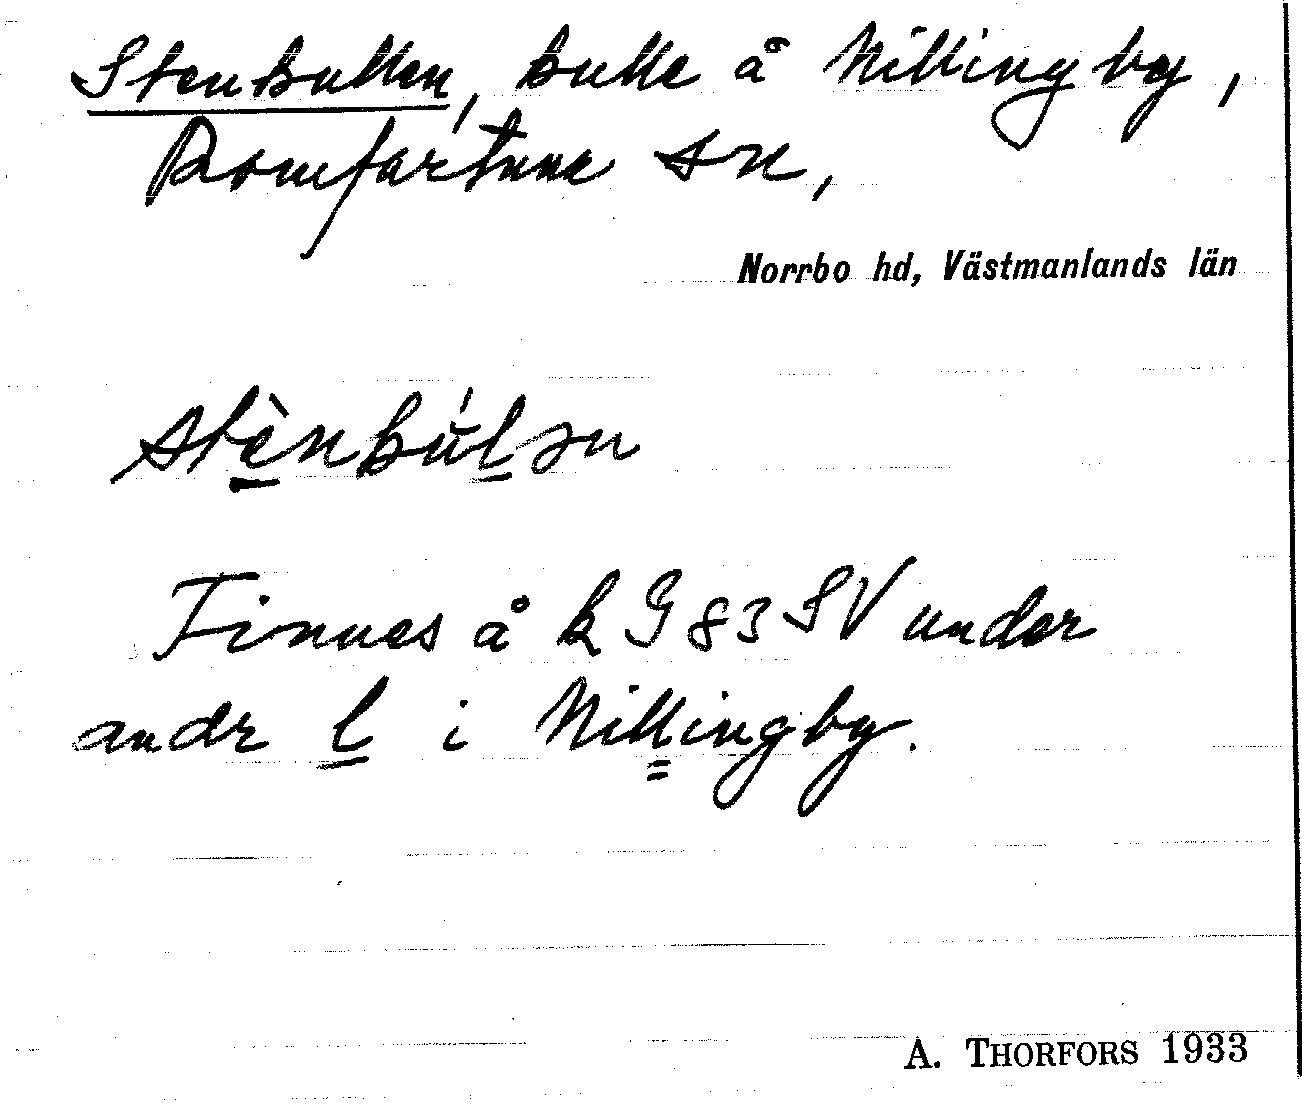 Stenbullen, bulle å Nillingby,
Romfartuna sn,
Norrbo hd, Västmanlands län
stènbúlən
Finnes å k G 83 SV under
andr l i Nillingby.
A. THORFORS 1933